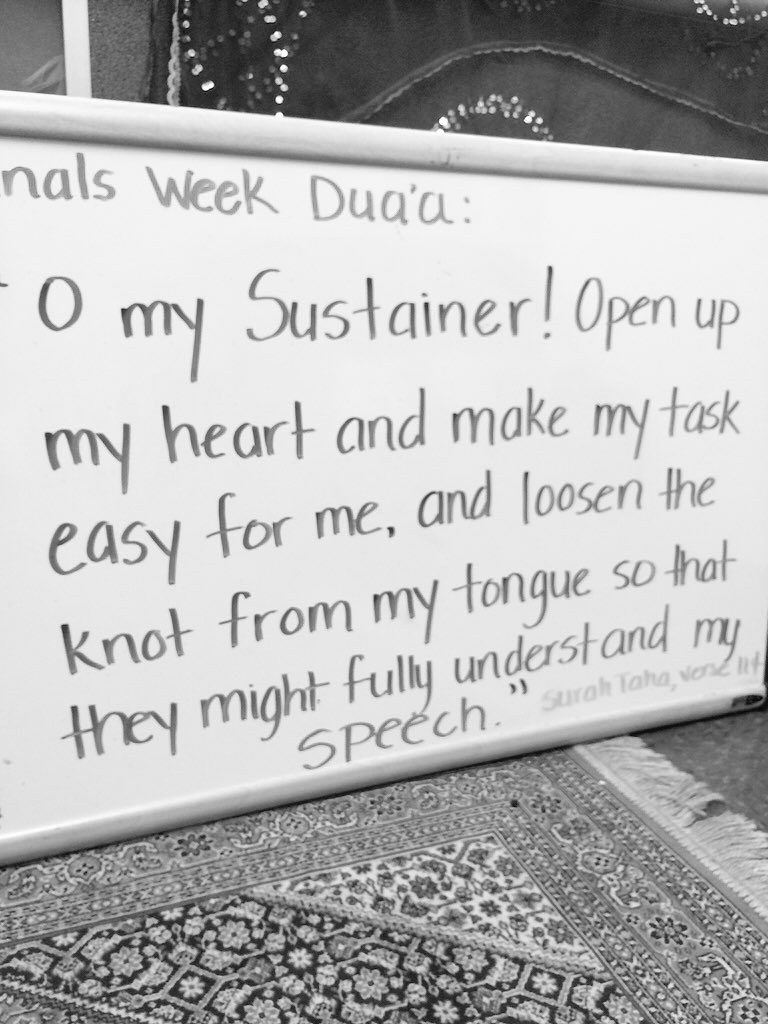 nals Week Dua'a:
O my Sustainer! Open up
my heart and make my task
easy for me, and loosen the
knot from my tongue so that
they might fully understand my
speech."
Surah Taha, verse